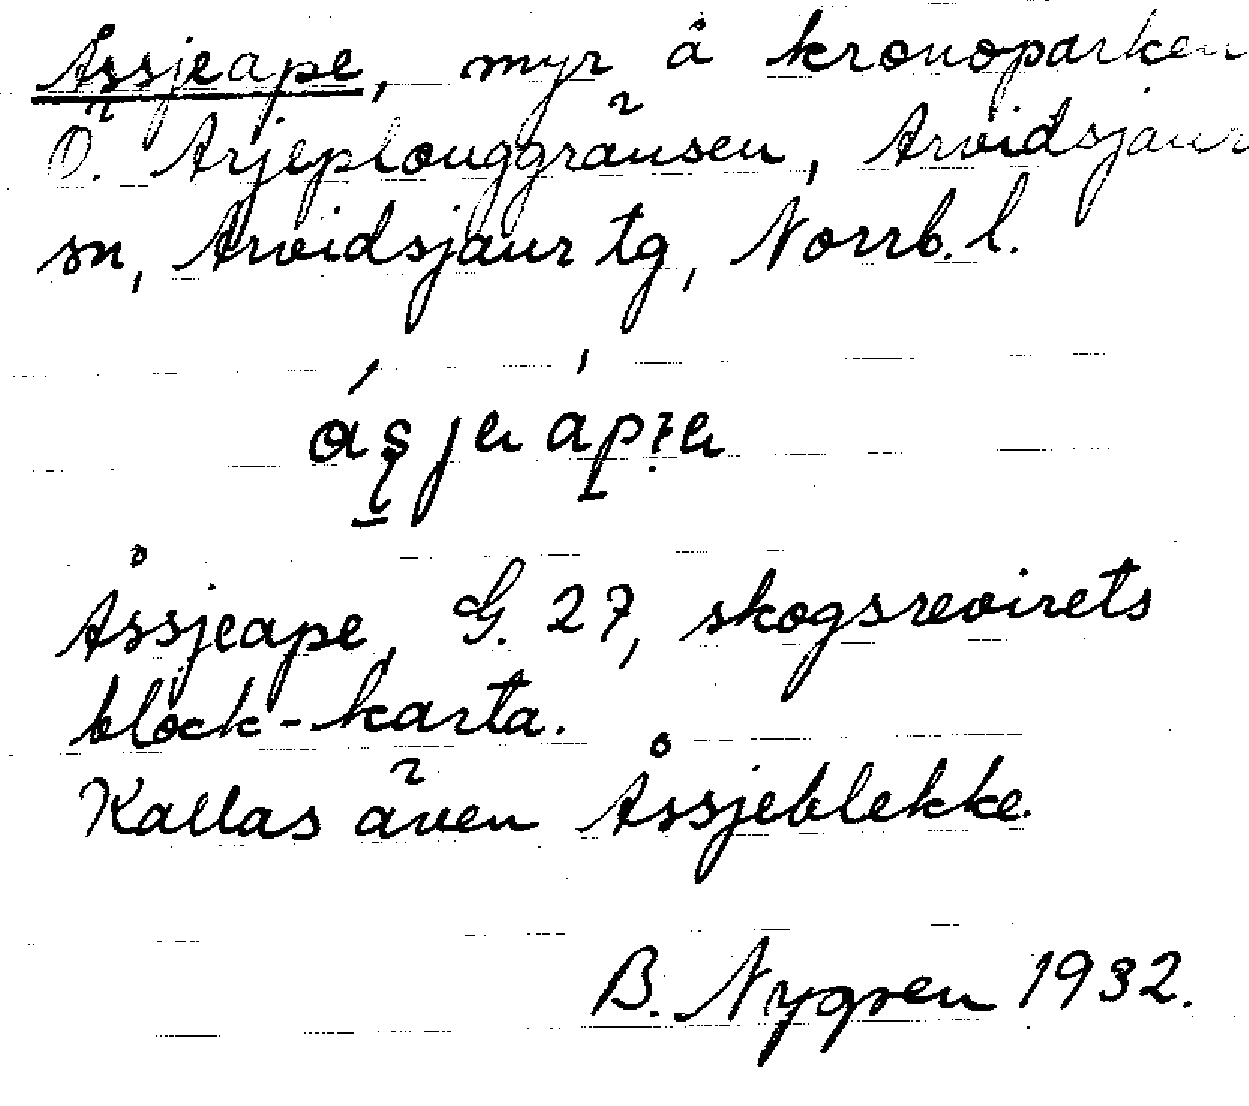 Åssjeape, myr å kronoparken
Ö. Arjeplouggränsen, Arvidsjaur
sn, Arvidsjaur tg, Norrb. l.
Åssjeape, G. 27, skogsrevirets
block-karta.
Kallas även Åssjeblekke.
B. Nygren 1932.